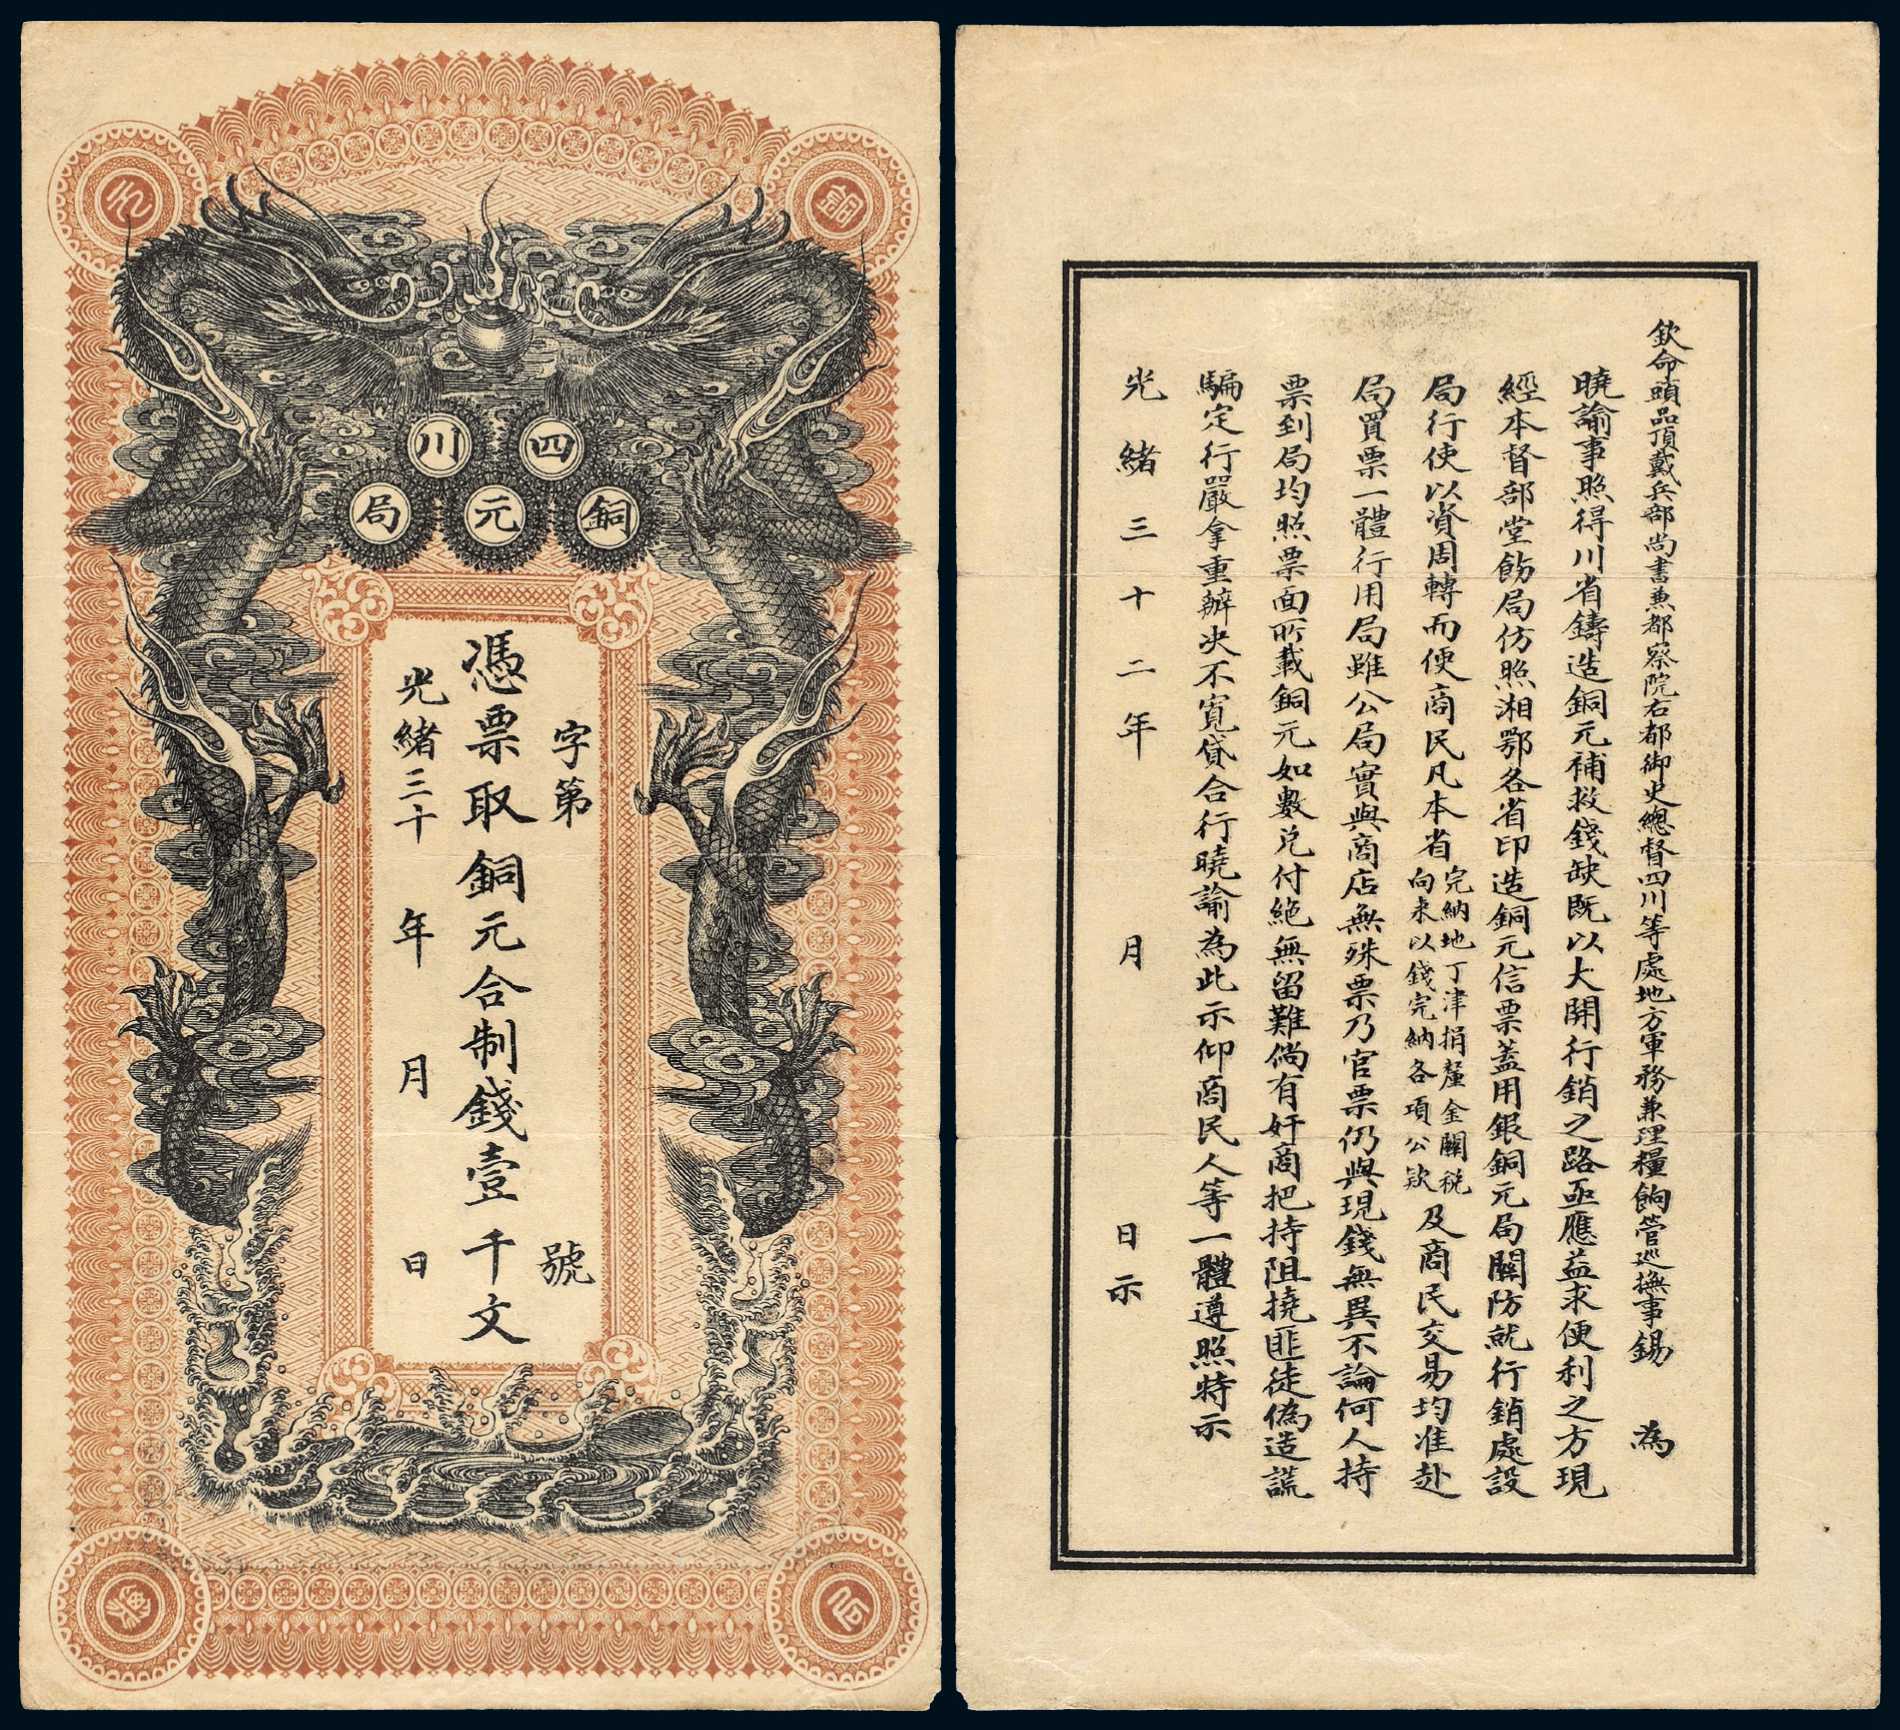 銅元
四川
銅元局
字第 號
憑票取銅元合制錢壹千文
光緒三十 年 月 日
局票
欽命頭品頂戴兵部尚書兼都察院右都御史總督四川等處地方軍務兼理糧餉管巡撫事錫 為
曉諭事照得川省鑄造銅元補救錢缺既以大開行銷之路亟應益求便利之方現
經本督部堂飭局仿照湘鄂各省印造銅元信票蓋用銀銅元局關防就行銷處設
局行使以資周轉而便商民凡本省完納地丁津捐釐金關稅向來以錢完納各項公款及商民交易均准赴
局買票一體行用局雖公局實與商店無殊票乃官票仍與現錢無異不論何人持
票到局均照票面所載銅元如數兌付絕無留難倘有奸商把持阻撓匪徒偽造謊
騙定行嚴拿重辦决不寬貸合行曉諭為此示仰商民人等一體遵照特示
光緒三十二年 月 日示